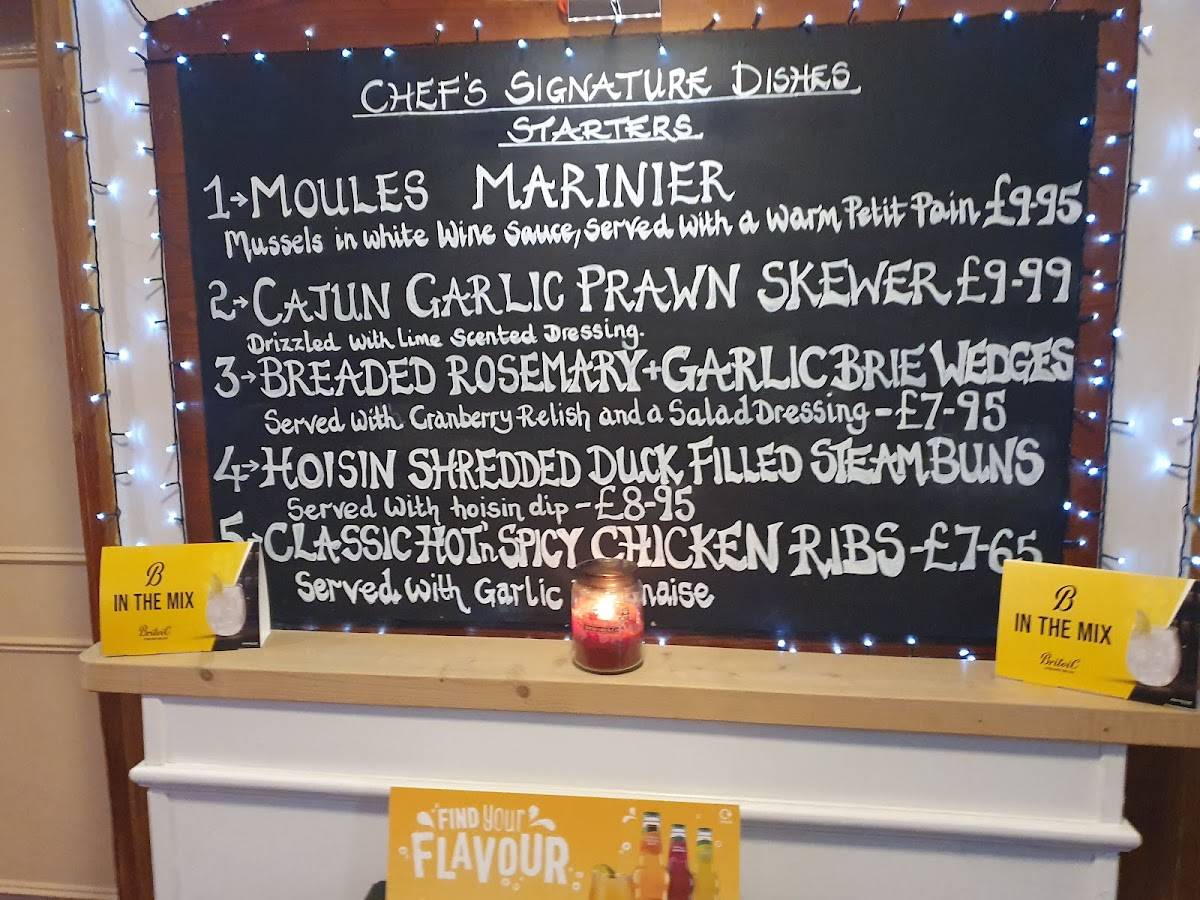 CHEF'S SIGNATURE DISHES
STARTERS
1→MOULES MARINIER
Mussels in white Wine Sauce, Served with a Warm Petit Pain £9-95
2→CAJUN GARLIC PRAWN SKEWER £9-99
Drizzled with Lime Scented Dressing.
3→BREADED ROSEMARY+GARLIC BRIE WEDGES
Served with Cranberry Relish and a Salad Dressing-£7-95
4→HOISIN SHREDDED DUCK FILLED STEAM BUNS
Served with hoisin dip-£8-95
5→CLASSIC HOT'n'SPICY CHICKEN RIBS-£7-65
Served with Garlic naise
B
IN THE MIX
Britvic
B
IN THE MIX
Britvic
FIND YOUR
FLAVOUR